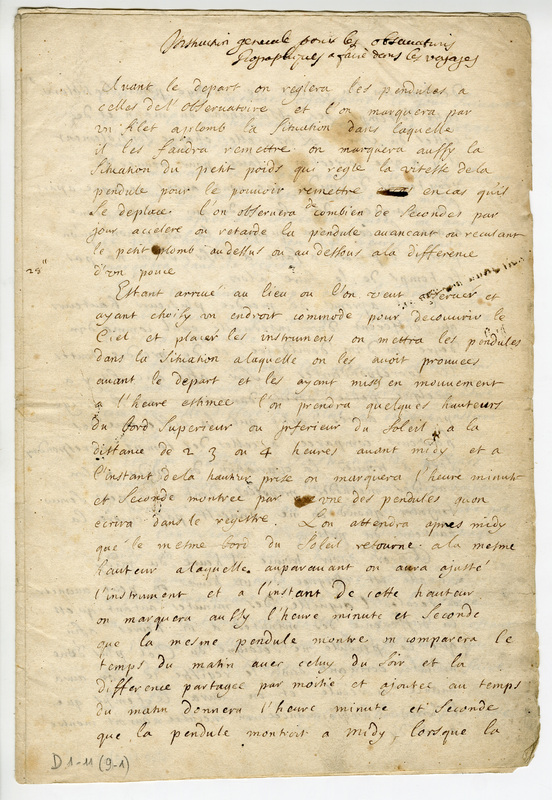 Instruction generale pour les observations
Geographiques a faire dans les voyages
Avant le depart on reglera les pendules a
celles de l'observatoire et l'on marquera par
un filet a plomb la situation dans laquelle
il les faudra remettre. on marquera aussy la
situation du petit poids qui regle la vitesse de la
pendule pour le pouvoir remettre en cas quis
se deplace l'on observera de combien de secondes par
jour accelere ou retarde la pendule avancant ou reculant
le petit plomb au dessus ou au dessous a la difference
d'un pouce
Estant arrivé au lieu ou l'on veut observer et
ayant choisy un endroit commode pour decouvrir le
Ciel et placer les instrumens on mettra les pendules
dans la situation a laquelle on les avoit prouvees
avant le depart et les ayant mis en mouvement
a l'heure estimee l'on prendra quelques hauteurs
du bord superieur ou inferieur du soleil a la
distance de 2 3 ou 4 heures avant midy et a
l'instant de la hauteur prise on marquera l'heure minute
et seconde montree par une des pendules quon
ecrira dans le registre. L'on attendra apres midy
que le mesme bord du Soleil retourne a la mesme
hauteur a laquelle auparavant on aura ajusté
l'instrument et a l'instant de cette hauteur
on marquera aussy l'heure minute et seconde
que la mesme pendule montre on comparera le
temps du matin avec celuy du soir et la
difference partagee par moitie et ajoutee au temps
du matin donnera l'heure minute et seconde
que la pendule montroit a midy, lorsque la
D 1-11 (9-1)